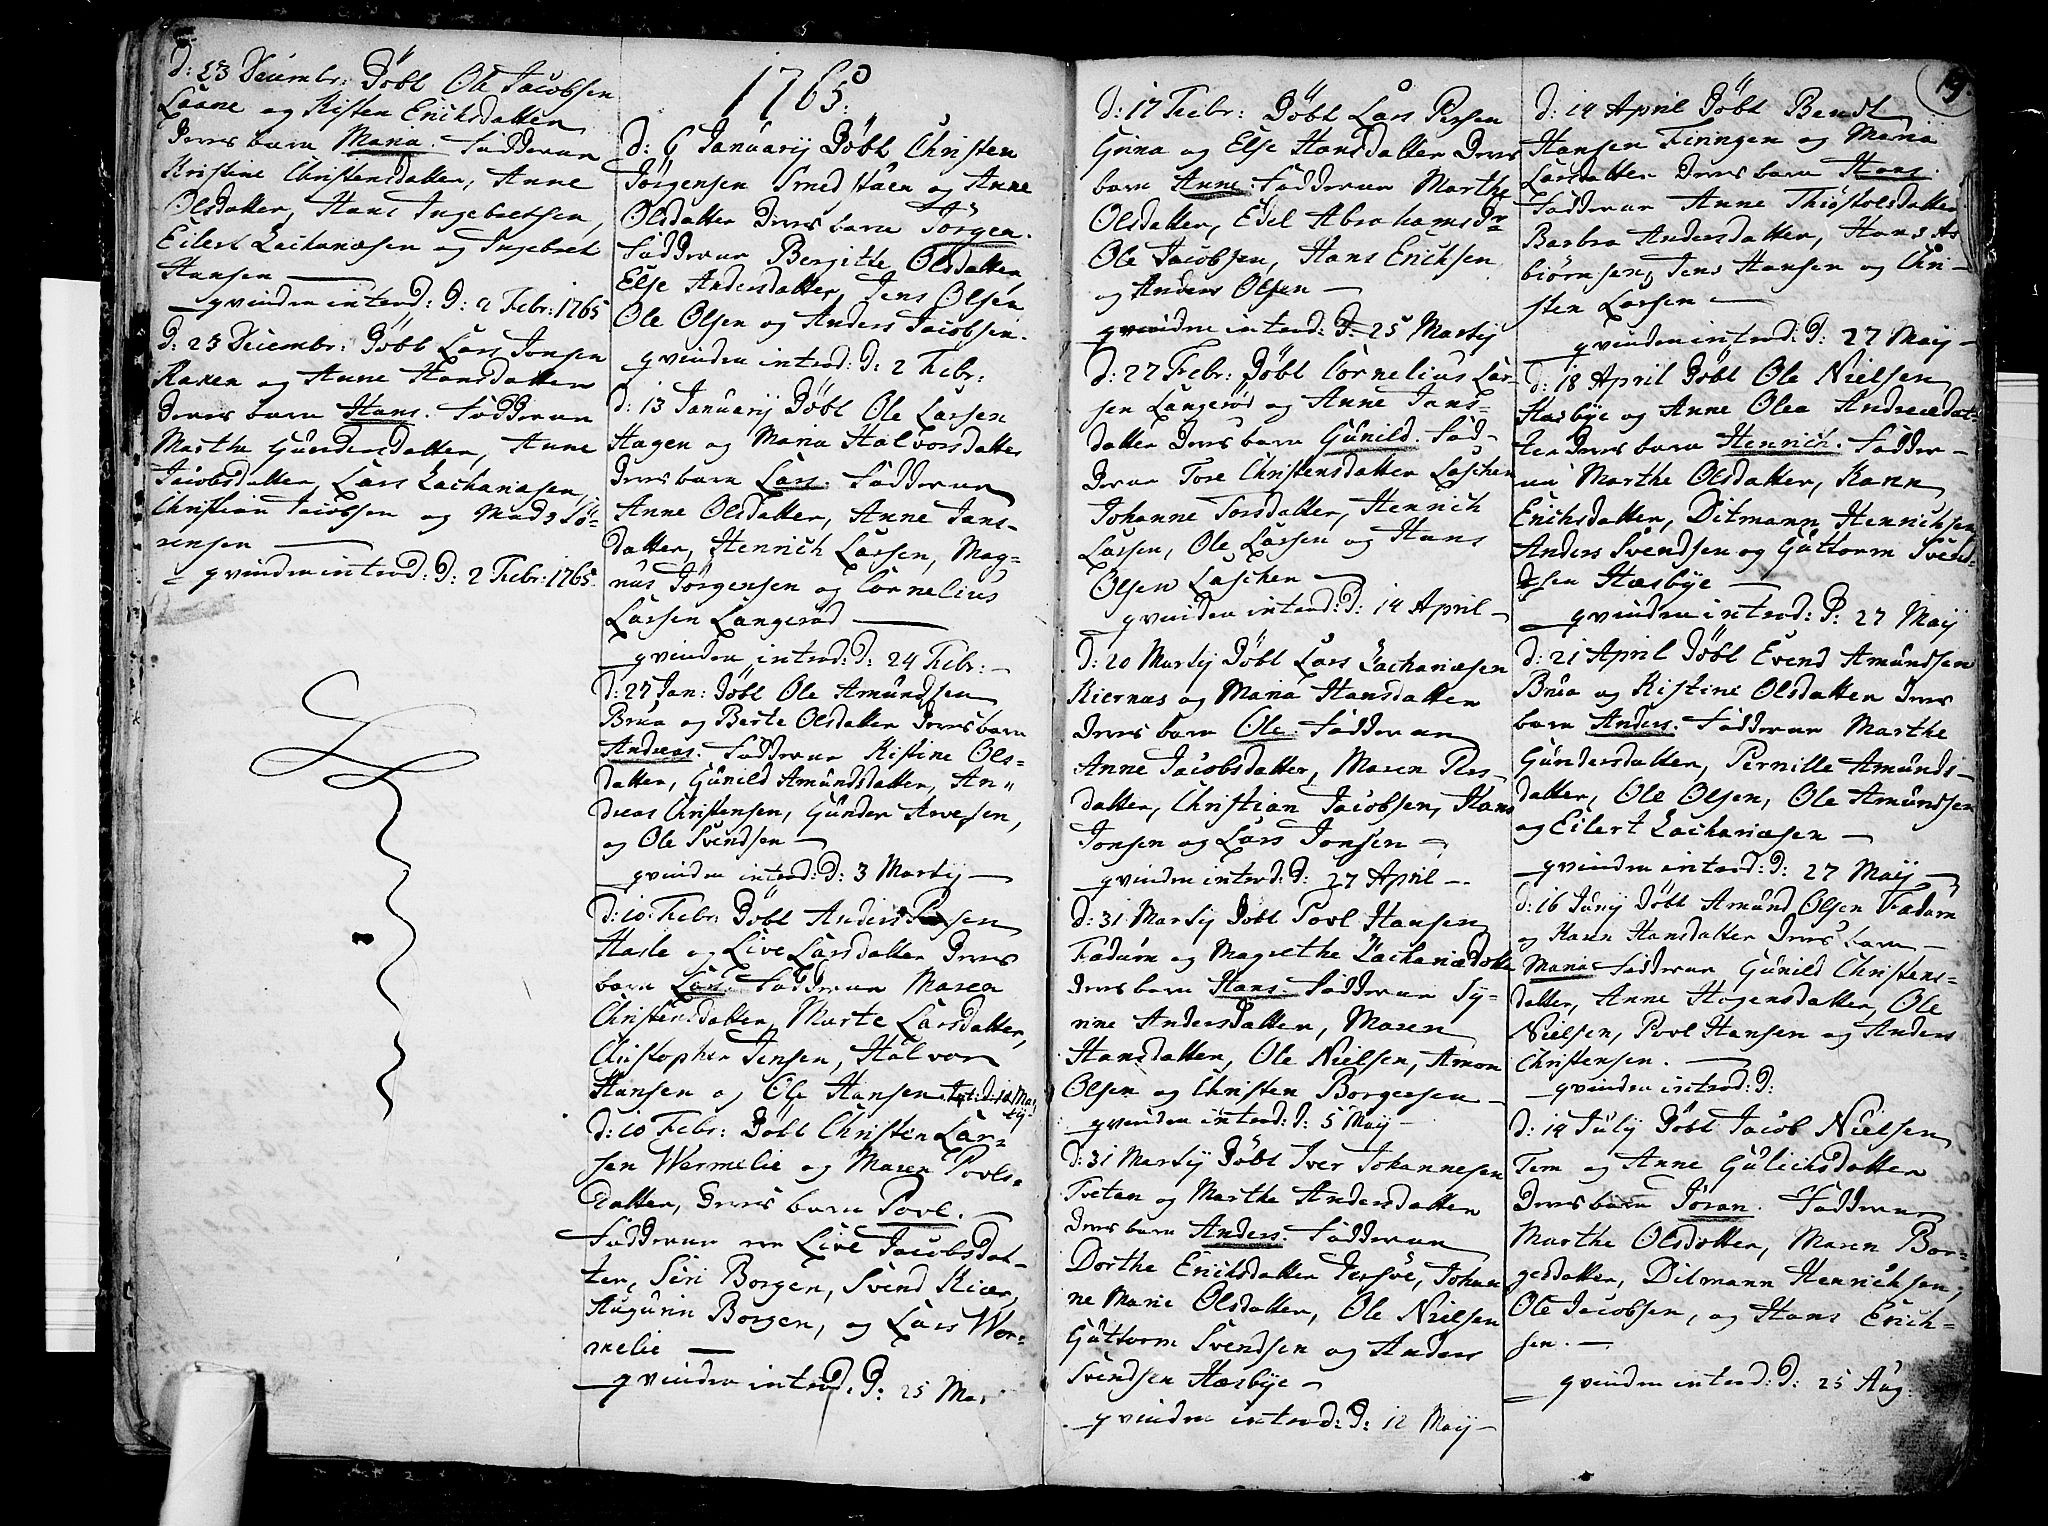 d: 23 Decembr: Döbt Ole Jacobsen
Laane og Kisten Erichsdatter
Deres barn Maria. Fadderne
Kristine Christensdatter, Anne
Olsdatter, Hans Ingebretsen,
Eilert Zachariæsen og Ingebret
Hansen —
— qvinden introd: d: 2 Febr: 1765
d: 23 Decembr: Döbt Lars Jonsen
og Anne Hansdatter
Deres barn Hans. Fadderne
Marthe Gundersdatter, Anne
Jacobsdatter, Lars Zachariæsen,
Christian Jacobsen og Mads Sö-
rensen —
— qvinden introd: d: 2 Febr: 1765.
1765.
d: 6 Januarij Döbt Christen
Jörgensen Smed og Anne
Olsdatter Deres barn Jörgen.
Fadderne Bergitte Olsdatter
Else Andersdatter, Jens Olsen
Ole Olsen og Anders Jacobsen.
qvinden introd: d: 2 Febr:
d: 13 Januarij Döbt Ole Larsen
Hagen og Maria Halvorsdatter
Deres barn Lars. Fadderne
Anne Olsdatter, Anne Jans-
datter, Henrich Larsen, Mag-
nus Jörgensen og Cornelius
Larsen Langeröd —
— qvinden introd: d: 24 Febr: —
d: 27 Jan: Döbt Ole Amundsen
Brua og Berte Olsdatter Deres barn
Andreas. Fadderne Kistine Ols-
datter, Gunild Amundsdatter, An-
dreas Christensen, Gunder Arvesen,
og Ole Svendsen —
— qvinden introd: d: 3 Martij —
d: 10 Febr: Döbt Anders
Hasle og Live Larsdatter Deres
barn Lars. Fadderne Maren
Christensdatter, Marte Larsdatter,
Christopher Jensen, Halvor
Hansen og Ole Hansen Int: d: 12 Mar
tij
d: 10 Febr: Döbt Christen Lar-
sen Wermelie og Maren Povls-
datter, Deres barn Povl. —
Fadderne ere Live Jacobsdat-
ter, Siri Borgen, Svend Kiær,
Augurin Borgen, og Lars Wer-
melie —
— qvinden introd: d: 25 Mar
19
d: 17 Febr: Döbt Lars Persen
Grina og Else Hansdatter Deres
barn Anne. Fadderne Marthe
Olsdatter, Edel Abrahamsdr
Ole Jacobsen, Hans Erichsen
og Anders Olsen —
qvinden introd: d: 25 Martij
d: 27 Febr: Döbt Cornelius Lar-
sen Langeröd og Anne Jans-
datter Deres barn Gunild. Fad-
derne Tore Christensdatter Laschen
Johanne Torsdatter, Henrich
Larsen, Ole Larsen og Hans
Olsen Laschen —
qvinden introd: d: 14 April —
d: 20 Martij Döbt Lars Zachariæsen
Kiernaas og Maria Hansdatter
Deres barn Ole. Fadderne
Anne Jacobsdatter, Maren Pers-
datter, Christian Jacobsen, Hans
Jonsen og Lars Jonsen —
— qvinden introd: d: 27 April —
d: 31 Martij Döbt Povl Hansen
Fadum og Magrethe Zachariædatter
Deres barn Hans. Fadderne Sy-
rine Andersdatter, Maren
Hansdatter, Ole Nielsen, Amon
Olsen og Christen Borgersen —
— qvinden introd: d: 5 Maij —
d: 31 Martij Döbt Iver Johannesen
Tveten og Marthe Andersdatter
Deres barn Anders. Fadderne
Dorthe Erichsdatter Jersöe, Johan
ne Marie Olsdatter, Ole Nielsen
Guttorm Svendsen og Anders
Svendsen Hæsbye —
— qvinden introd: d: 12 Maij —
d: 14 April Döbt Bendt
Hansen Feiringen og Maria
Larsdatter Deres barn Hans.
Fadderne Anne Thiostolsdatter
Barbra Andersdatter, Hans As
biörnsen, Jens Hansen og Chri-
sten Larsen —
qvinden introd: d: 27 Maij —
d: 18 April Döbt Ole Nielsen
Hæsbye og Anne Olea Andreædat
ter Deres barn Henrich. Fadder-
ne Marthe Olsdatter, Karen
Erichsdatter, Ditmann Henrichsen
Anders Svendsen og Guttorm Svend
sen Hæsbye —
— qvinden introd: d: 27 Maij
d: 21 April Döbt Evend Amundsen
Brua og Kistine Olsdatter Deres
barn Anders. Fadderne Marthe
Gundersdatter, Pernille Amunds-
datter, Ole Olsen, Ole Amundsen
og Eilert Zachariæsen —
— qvinden introd: d: 27 Maij —
d: 16 Junij Döbt Amund Olsen Fadum
og Karen Hansdatter Deres barn —
Maria. Fadderne Gunild Christens-
datter, Anne Hagensdatter, Ole
Nielsen, Povl Hansen og Anders
Christensen. —
qvinden introd: d:
d: 14 July Döbt Jacob Nielsen
Tem og Anne Gulichsdatter
Deres barn Joran. Fadderne
Marthe Olsdatter, Maren Bor-
gesdatter, Ditmann Henrichsen,
Ole Jacobsen, og Hans Erich-
sen. —
— qvinden introd: d: 25 Aug: